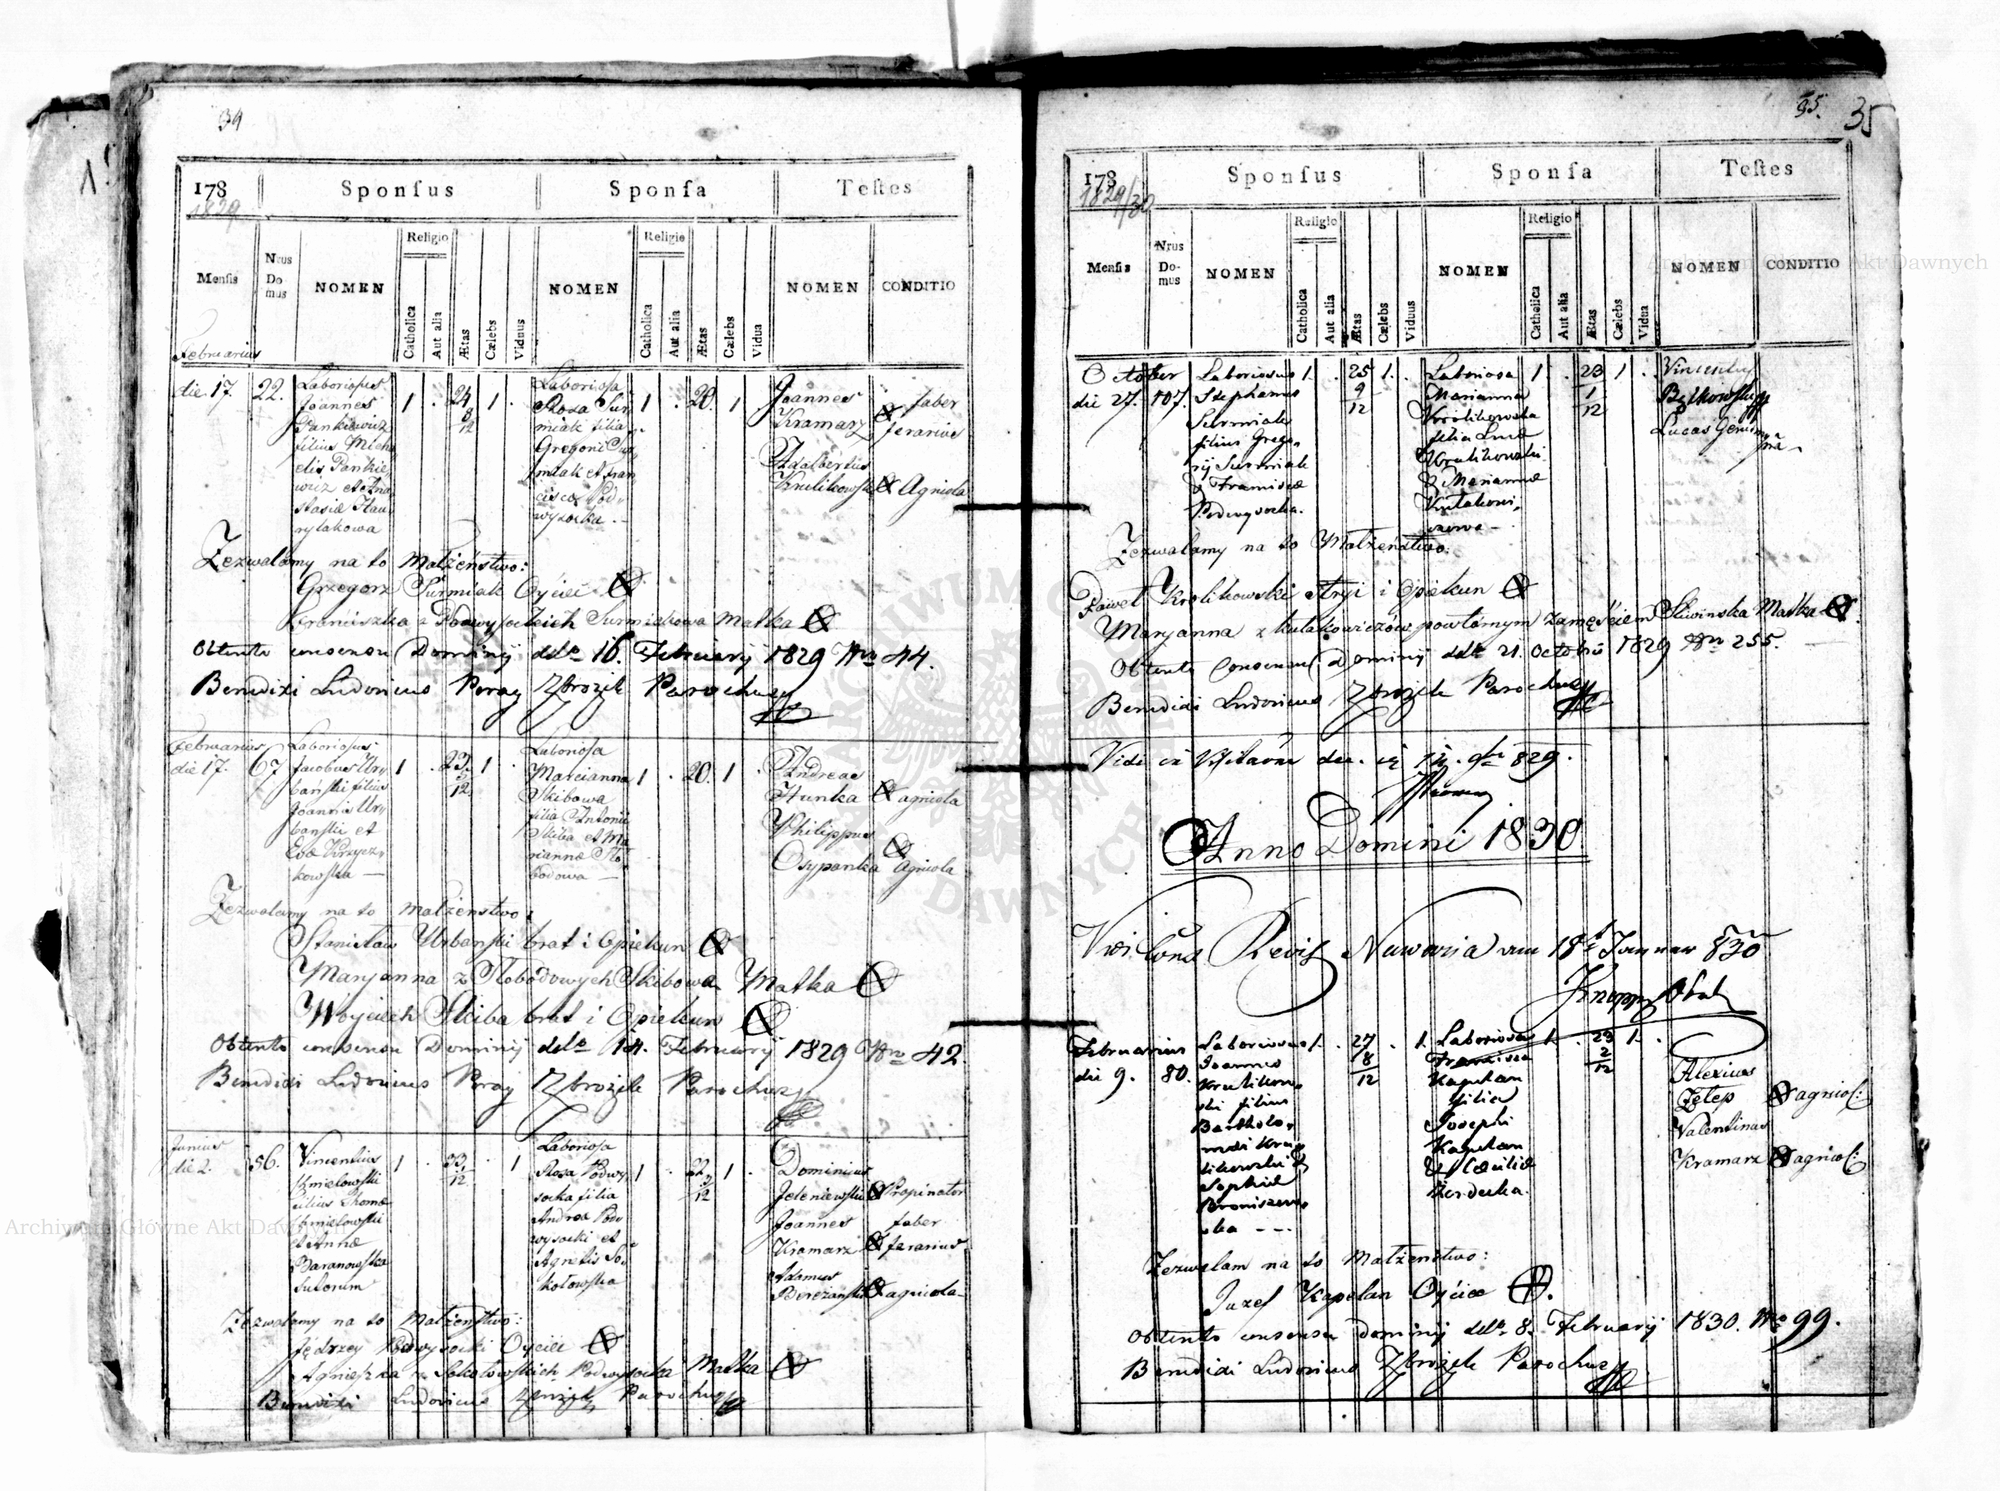 34
178 Sponsus Sponsa Testes
1829
Mensis Nrus Domus NOMEN Religio Catholica Aut alia Ætas Cælebs Viduus NOMEN Religio Catholica Aut alia Ætas Cælebs Vidua NOMEN CONDITIO
Februarius
die 17. 22.
Laboriosus
Joannes
Pankiewicz
filius Micha
elis Pankie
wicz et Ana
stasiæ Haw
rylakowa
1 . 24 8/12 1 .
Laboriosa
Roza Sur
miak filia
Gregorii Sur
miak et Fran
ciscæ Pod
wysocka. —
1 . 20. 1
Joannes
Kramarz faber
ferarius
Adalbertus
Krulikowski Agricola
Zezwalamy na to Małżeństwo:
Grzegorz Surmiak Oyciec
Franciszka z Podwysockich Surmiakowa Matka
Obtento consensu Dominij ddto 16. Februarij 1829 Nro 44.
Benedixi Ludovicus Poray Zbrożek Parochus
Februarius
die 17. 67
Laboriosus
Jacobus Ur
bański filius
Joannis Ur
bański et
Evæ Krzycz
kowska —
1 . 23 3/12 1 .
Laboriosa
Marianna
Skibowa
filia Antonii
Skiba et Ma
riannæ Sło
bodowa —
1 . 20. 1 .
Andreas
Hunka agricola
Philippus
Osypanka Agricola
Zezwalamy na to małżeństwo:
Stanisław Urbański brat i Opiekun
Maryanna z Słobodowych Skibowa Matka
Woyciech Skiba brat i Opiekun
Obtento consensu Dominij ddto 14. Februarij 1829 Nro 42.
Benedixi Ludovicus Poray Zbrożek Parochus
Junius
die 2. 56.
Vincentius
Chmielowski
filius Thomæ
Chmielowski
et Annæ
Baranowska
Sutorum
1 . 33 /12 . 1
Laboriosa
Roza Podwy
socka filia
Andreæ Pod
wysocki et
Agnetis So
kołowska
1 . 22 2/12 1 .
Dominicus
Jeleniewski Propinator
Joannes faber
Kramarz ferarius
Adamus
Bereżański agricola
Zezwalamy na to małżeństwo:
Jędrzey Podwysocki Oyciec
Agnieszka z Sokołowskich Podwysocka Matka
Benedixi Ludovicus Zbrożek Parochus
35. 35
178 Sponsus Sponsa Testes
1829/30
Mensis Nrus Domus NOMEN Religio Catholica Aut alia Ætas Cælebs Viduus NOMEN Religio Catholica Aut alia Ætas Cælebs Vidua NOMEN CONDITIO
October
die 27. 107.
Laboriosus
Stephanus
Surmiak
filius Grego
rij Surmiak
& Franciscæ
Podwysocka.
1. . 25 9/12 1. .
Laboriosa
Marianna
Krolikowska
filia Lucæ
Krulikowski
& Mariannæ
Kułakowi
czowa —
1 . 23 1/12 1 .
Vincenty
Bętkowski
Lucas
Zezwalamy na to Małżeństwo:
Paweł Krolikowski Stryi i Opiekun
Maryanna z Kułakowiczów powtórnym Zamęściem Sliwinska Matka
Obtento Consensu Dominij ddto 21. Octobris 1829 Nro 255.
Benedixi Ludovicus Zbrożek Parochus
Vidi in Visitatione 829.
Anno Domini 1830
Revis Nawaria am 18t Januar 830
Februarius
die 9. 80.
Laboriosus
Joannes
Krulikow
ski filius
Bartholo
mæi Kru
likowski &
Sophiæ
Broniszews
ka — —
1. . 27 8/12 . 1.
Laboriosa
Francisca
Kapelan
filia
Josephi
Kapelan
& Cæciliæ
Kordecka.
1. . 23 2/12 1. .
Alexius
Zęłep agricol:
Valentinus
Kramarz agricol:
Zezwalam na to małżeństwo:
Juzef Kapelan Oyciec
Obtento consensu Dominij ddto 8. Februarij 1830. Nro 99.
Benedixi Ludovicus Zbrożek Parochus
Archiwum Główne Akt Dawnych
Archiwum Główne Akt Dawnych
ARCHIWUM GŁÓWNE AKT DAWNYCH